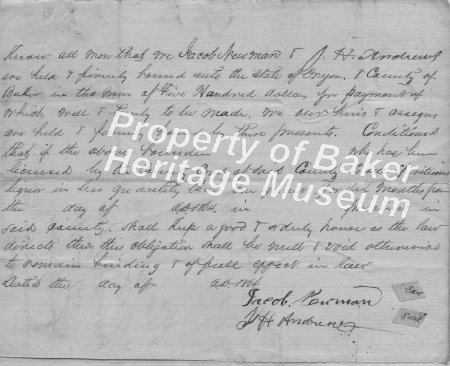 Know all men that we Jacob Newman & J. H. Andrews
are held & firmly bound unto the state of Oregon, & County of
Baker in the sum of Five Hundred dollars, for payment of
which, well & truly to be made, we our heirs & assigns
are held & firmly bound by these presents. Conditioned
that if the above bounden who has been
licensed by said County
liquor in less quantity months from
the day of AD 1864, in in
said county. shall keep a good & orderly house as the law
directs then this obligation shall be null & void otherwise
to remain binding & of full effect in law
Dated the day of AD 1864
Jacob. Newman
J H Andrews
Seal
Seal
Property of Baker
Heritage Museum